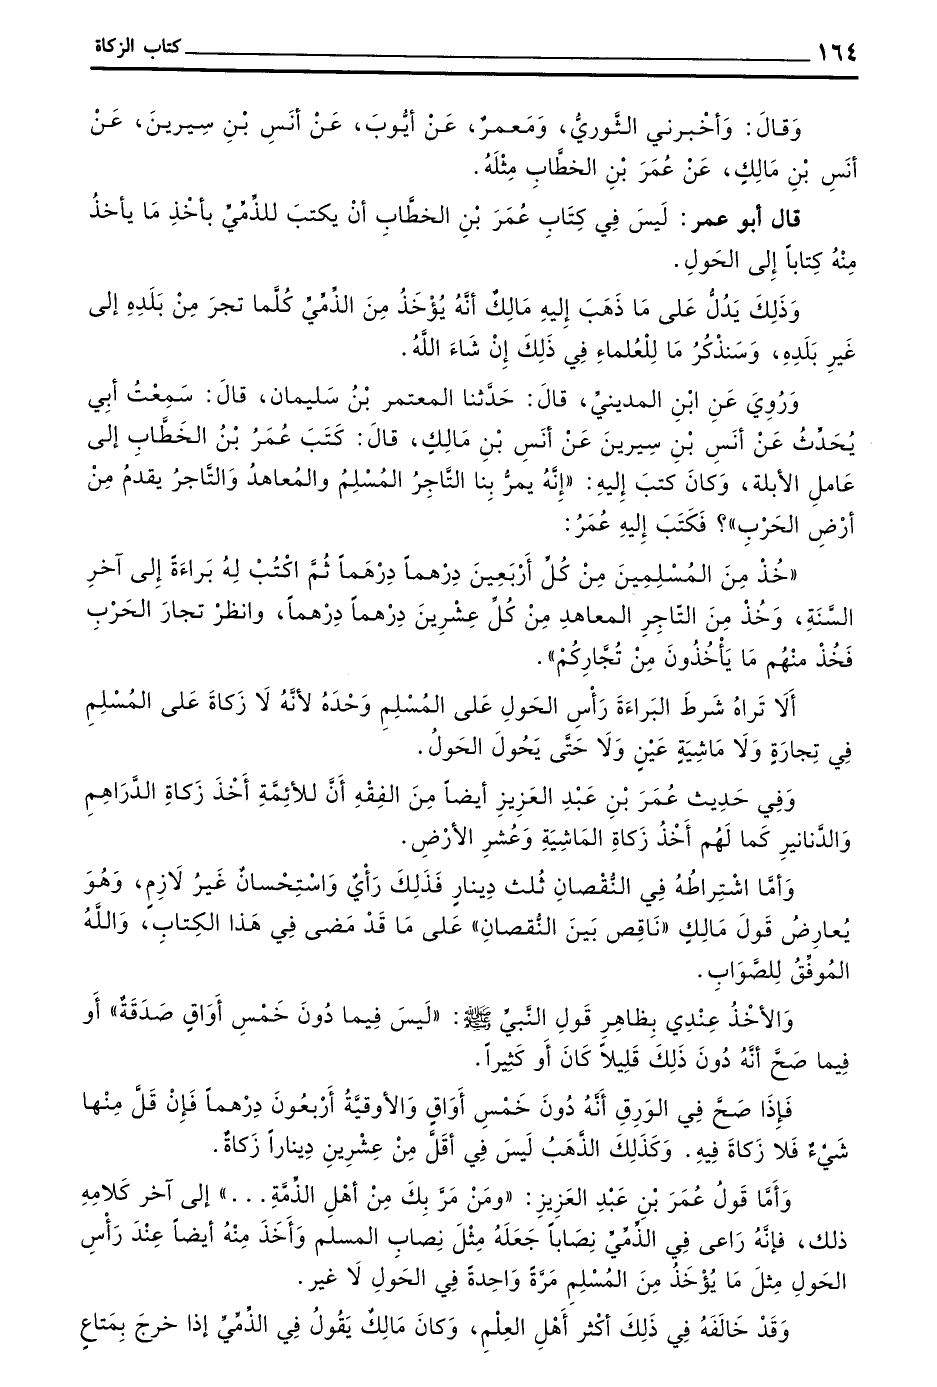 ١٦٤ كتاب الزكاة
وَقالَ: وَأخْبرني الثَّوريُّ، وَمَعمرٌ، عَنْ أيُّوبَ، عَنْ أنَسِ بْنِ سِيرينَ، عَنْ
أنَسِ بْنِ مَالِكٍ، عَنْ عُمَرَ بْنِ الخطَّابِ مِثْلَهُ.
قال أبو عمر: لَيسَ فِي كِتَابِ عُمَرَ بْنِ الخطَّابِ أنْ يكتبَ للذِّمِّيِّ بأخْذِ مَا يأخذُ
مِنْهُ كِتاباً إلى الحَولِ.
وَذَلِكَ يَدُلُّ عَلى مَا ذَهَبَ إليهِ مَالِكٌ أنَّهُ يُؤْخَذُ مِنَ الذِّمِّيِّ كُلَّما تجرَ مِنْ بَلَدِهِ إلى
غَيرِ بَلَدِهِ، وَسَنذْكُرُ مَا لِلْعُلماءِ فِي ذَلِكَ إنْ شَاءَ اللَّهُ.
وَرُوِيَ عَنِ ابْنِ المدينيِّ، قالَ: حَدَّثنا المعتمر بْنُ سَليمان، قالَ: سَمِعْتُ أبي
يُحَدِّثُ عَنْ أنَسِ بْنِ سِيرينَ عَنْ أنَسِ بْنِ مَالِكٍ، قالَ: كَتَبَ عُمَرُ بْنُ الخَطَّابِ إلى
عَاملِ الأبلة، وَكانَ كتبَ إليهِ: «إنَّهُ يمرُّ بنا التَّاجِرُ المُسْلِمُ والمُعاهدُ وَالتَّاجرُ يقدمُ مِنْ
أرْضِ الحَرْبِ»؟ فَكَتَبَ إليهِ عُمَرُ:
«خُذْ مِنَ المُسْلِمِينَ مِنْ كُلِّ أَرْبَعِينَ دِرْهماً دِرْهَماً ثُمَّ اكْتُبْ لِهُ بَراءَةً إلى آخرِ
السَّنَةِ، وَخُذْ مِنَ التَّاجِرِ المعاهدِ مِنْ كُلِّ عِشْرِينَ دِرْهماً دِرْهماً، وانظرْ تجارَ الحَرْبِ
فَخُذْ منْهُم مَا يَأْخُذُونَ مِنْ تُجَّارِكُمْ».
أَلَا تَراهُ شَرطَ البَراءَةَ رَأسِ الحَولِ عَلى المُسْلِمِ وَحْدَهُ لأنَّهُ لَا زَكاةَ عَلى المُسْلِمِ
فِي تِجارَةٍ وَلَا مَاشِيَةٍ عَيْنٍ وَلَا حَتَّى يَحُولَ الحَولُ.
وَفِي حَديث عُمَرَ بْنِ عَبْدِ العَزيزِ أيضاً مِنَ الفِقْهِ أنَّ للأئِمَّةِ أَخْذَ زَكاةِ الدَّرَاهِمِ
وَالدَّنانيرِ كَما لَهُم أَخْذُ زَكاةِ المَاشِيَةِ وَعُشرِ الأرْضِ.
وَأمَّا اشْتِراطُهُ فِي النُّقْصانِ ثُلث دِينارٍ فَذَلِكَ رَأْيٌ وَاسْتِحْسانٌ غَيرُ لَازِمٍ، وَهُوَ
يُعارِضُ قَولَ مَالِكٍ «نَاقِص بَينَ النُّقصانِ» عَلى مَا قَدْ مَضى فِي هَذا الكِتابِ، وَاللَّهُ
المُوفِّقُ لِلصَّوَابِ.
وَالأخْذُ عِنْدِي بِظاهِرِ قَولِ النَّبيِّ ﷺ: «لَيسَ فِيما دُونَ خَمْسِ أَوَاقٍ صَدَقَةٌ» أو
فِيما صَحَّ أنَّهُ دُونَ ذَلِكَ قَلِيلاً كَانَ أو كَثِيراً.
فَإذَا صَحَّ فِي الوَرِقِ أنَّهُ دُونَ خَمْسِ أَوَاقٍ وَالأوقيَّةُ أرْبعُونَ دِرْهماً فَإنْ قَلَّ مِنْها
شَيْءٌ فَلا زَكاةَ فِيهِ. وَكَذَلِكَ الذَّهَبُ لَيسَ فِي أقَلَّ مِنْ عِشْرِينِ دِيناراً زَكاةٌ.
وَأمَّا قَولُ عُمَرَ بْنِ عَبْدِ العَزيزِ: «ومَنْ مَرَّ بِكَ مِنْ أهْلِ الذِّمَّةِ...» إلى آخر كَلامِهِ
ذلك، فإنَّهُ رَاعى فِي الذِّمِّيِّ نِصَاباً جَعَلَهُ مِثْلَ نِصابِ المسلم وَأخَذَ مِنْهُ أيضاً عِنْدَ رَأْسِ
الحَولِ مِثلَ مَا يُؤْخَذُ مِنَ المُسْلِمِ مَرَّةً وَاحِدةً فِي الحَولِ لَا غير.
وَقَدْ خَالَفَهُ فِي ذَلِكَ أكثر أهْلِ العِلْمِ، وَكانَ مَالِكٌ يَقُولُ فِي الذِّمِّيِّ إذا خرجَ بِمَتاعٍ